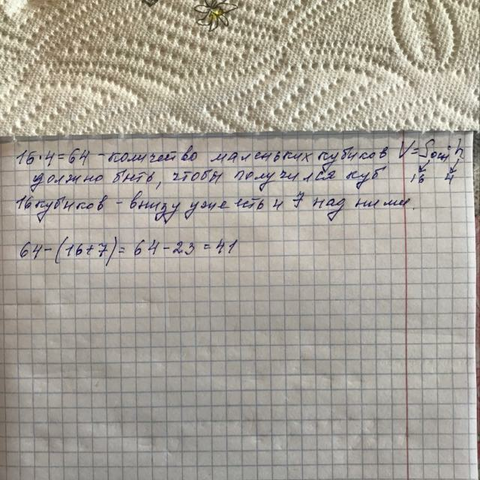 16·4=64 - количество маленьких кубиков V=Sосн·h
должно быть, чтобы получился куб 16 4
16 кубиков - внизу уже есть и 7 над ними.
64-(16+7)=64-23=41